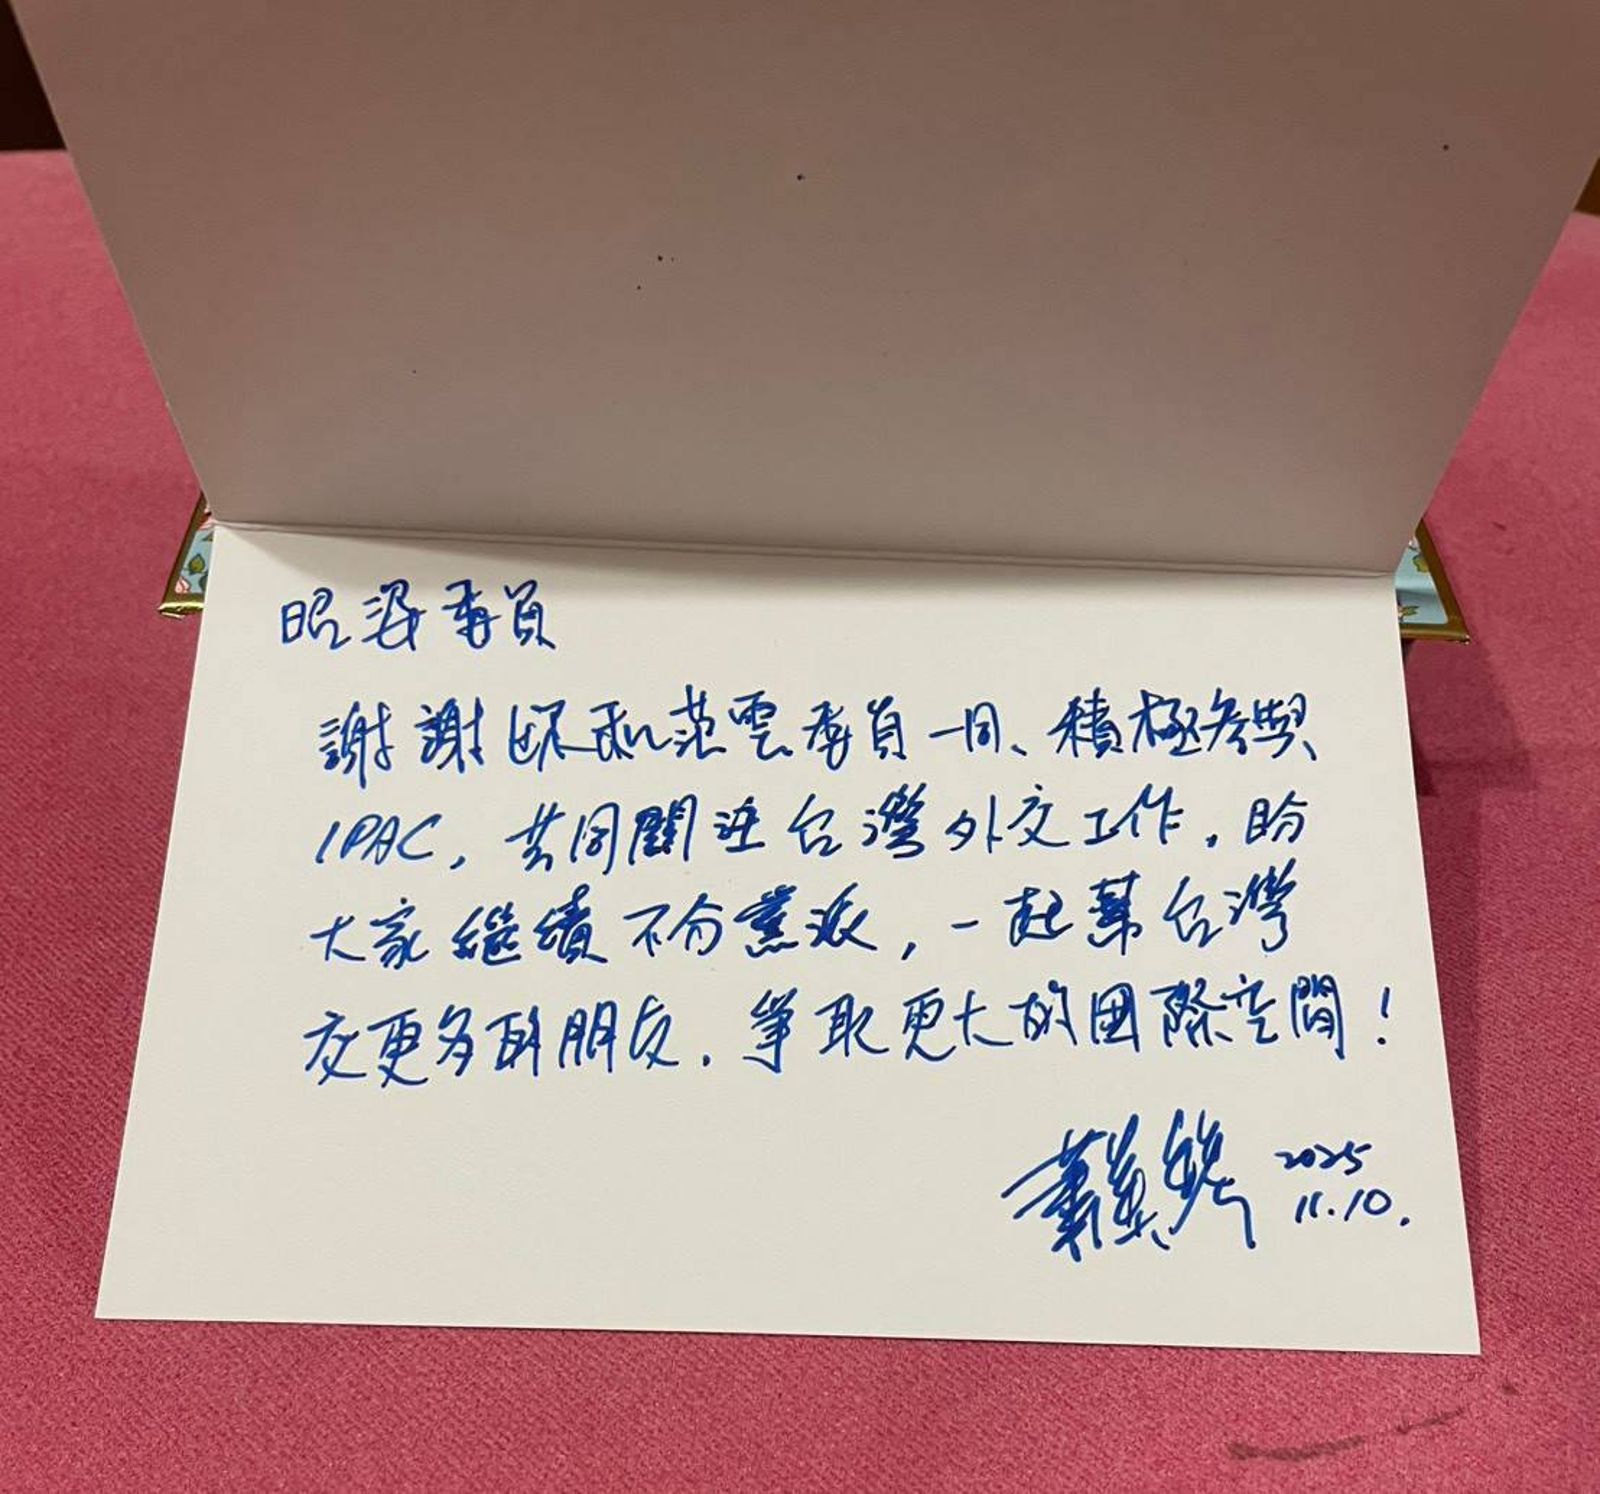 昭姿委員
謝謝妳和范雲委員一同、積極參與
IPAC,共同關注台灣外交工作,盼
大家繼續不分黨派,一起幫台灣
交更多的朋友,爭取更大的國際空間!
蕭美琴 2025
11.10.